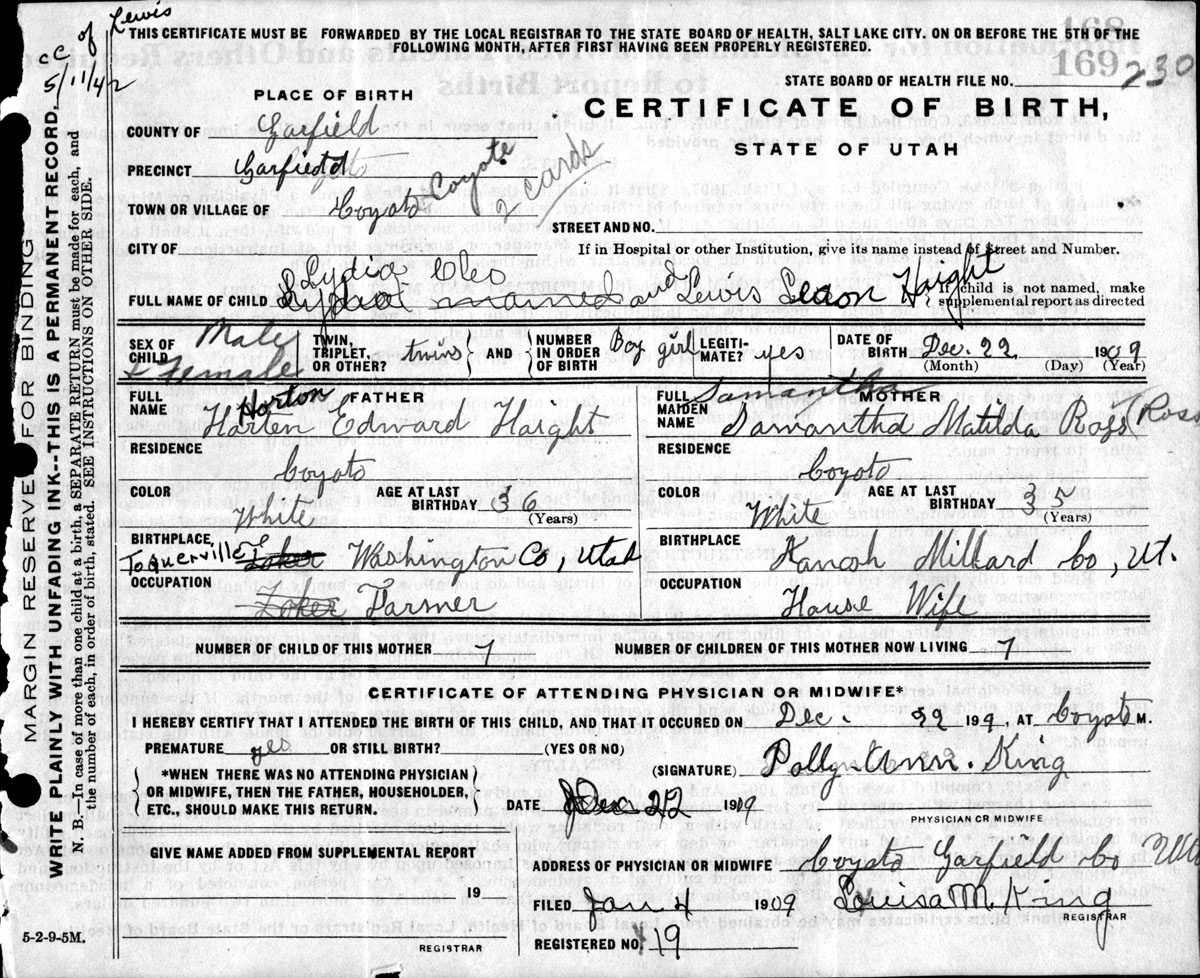 cc of Lewis
5/11/42
THIS CERTIFICATE MUST BE FORWARDED BY THE LOCAL REGISTRAR TO THE STATE BOARD OF HEALTH, SALT LAKE CITY. ON OR BEFORE THE 5TH OF THE
FOLLOWING MONTH, AFTER FIRST HAVING BEEN PROPERLY REGISTERED.
168
169 230
STATE BOARD OF HEALTH FILE NO.
PLACE OF BIRTH
CERTIFICATE OF BIRTH,
STATE OF UTAH
COUNTY OF Garfield
PRECINCT Garfield
TOWN OR VILLAGE OF Coyoto Coyote
2 cards
STREET AND NO.
CITY OF
If in Hospital or other Institution, give its name instead of Street and Number.
Lydia Cleo
FULL NAME OF CHILD not named and Lewis Leaon Haight
If child is not named, make
supplemental report as directed
SEX OF CHILD Male & Female
TWIN, TRIPLET, OR OTHER? twins
AND
NUMBER IN ORDER OF BIRTH Boy girl
LEGITIMATE? yes
DATE OF BIRTH Dec. 22 1909
(Month) (Day) (Year)
FULL NAME FATHER
Horton
Horten Edward Haight
FULL MAIDEN NAME MOTHER
Samantha
Samantha Matilda Ross (Ross
RESIDENCE
Coyoto
RESIDENCE
Coyoto
COLOR White
AGE AT LAST BIRTHDAY 36
(Years)
COLOR White
AGE AT LAST BIRTHDAY 35
(Years)
BIRTHPLACE
Toquerville Toker Washington Co, Utah
BIRTHPLACE
Kanosh Millard Co, Ut.
OCCUPATION
Toker Farmer
OCCUPATION
House Wife
NUMBER OF CHILD OF THIS MOTHER 7
NUMBER OF CHILDREN OF THIS MOTHER NOW LIVING 7
CERTIFICATE OF ATTENDING PHYSICIAN OR MIDWIFE*
I HEREBY CERTIFY THAT I ATTENDED THE BIRTH OF THIS CHILD, AND THAT IT OCCURED ON Dec. 22 199, AT Coyoto M.
PREMATURE yes OR STILL BIRTH? (YES OR NO)
*WHEN THERE WAS NO ATTENDING PHYSICIAN
OR MIDWIFE, THEN THE FATHER, HOUSEHOLDER,
ETC., SHOULD MAKE THIS RETURN.
(SIGNATURE) Polly Ann. King
DATE Dec 22 1909
PHYSICIAN OR MIDWIFE
GIVE NAME ADDED FROM SUPPLEMENTAL REPORT
19
REGISTRAR
ADDRESS OF PHYSICIAN OR MIDWIFE Coyoto Garfield Co Utah
FILED Jan 4 1909 Louisa M. King
REGISTRAR
REGISTERED NO. 19
5-2-9-5M.
MARGIN RESERVED FOR BINDING
WRITE PLAINLY WITH UNFADING INK--THIS IS A PERMANENT RECORD.
N. B.—In case of more than one child at a birth, a SEPARATE RETURN must be made for each, and
the number of each, in order of birth, stated. SEE INSTRUCTIONS ON OTHER SIDE.